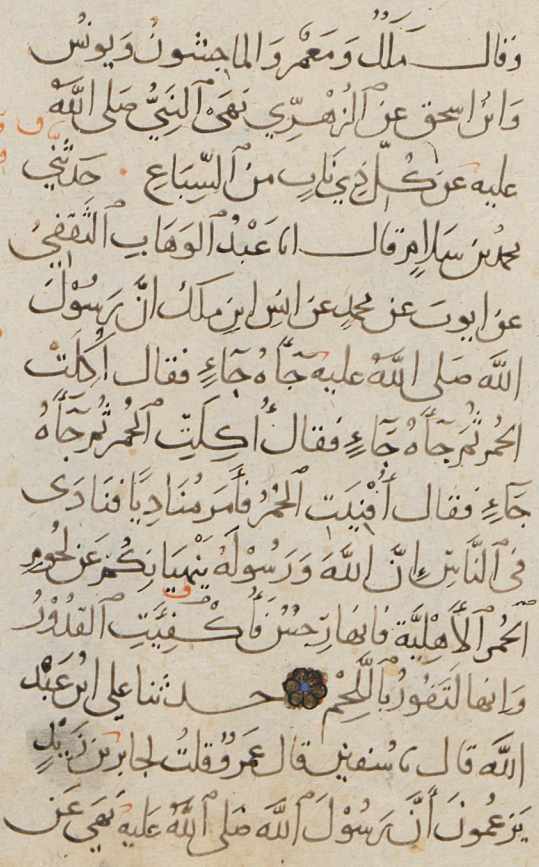 وَقال مَلِكٌ وَمَعْمَرٌ وَالماجِشونُ وَيونُسُ
وَابنُ اسحق عَنِ ٱلزُّهْرِيِّ نَهَى ٱلنَّبِيُّ صَلى اللَّهُ
عليه عَن كُلِّ ذِي نَابٍ مِنَ ٱلسِّبَاعِ حَدَّثَنِي
محمدُ بن سَلَامٍ قال انا عَبْدُ ٱلوَهَابِ ٱلثَّقَفِيُّ
عن ايوبَ عن محمدٍ عن انسِ ابنِ ملكٍ انَّ رَسُوْلَ
اللَّه صَلى اللَّهُ عليه جَآءَهُ جَآءٍ فقال أُكِلَتْ
الحُمُر ثُمَّ جَآءَهُ جَآءٍ فقال أُكِلَتِ ٱلحُمُر ثُمَّ جَآءَهُ
جَآءٍ فقال أُفْنِيَتِ ٱلحُمُرُ فَأَمَرَ مُنَادِيًا فنَادَى
فى ٱلنَّاسِ إِنَّ اللَّهَ وَرَسُوْلَهُ يَنْهَيَانِكُمْ عَن لحُومِ
ٱلحُمُرِ ٱلأَهْلِيَّة فانها رِجسٌ فَأُكْفِئَتِ ٱلقُدُوْرُ
وَانها لَتَفُورُ بِٱللَّحْمِ حدثنا علي ابنُ عَبْد
اللَّه قال نا سُفين قال عَمروٌ قلتُ لجابر بن زَيْدٍ
يَزعُمونَ أَنَّ رَسُوْلَ ٱللَّه صَلى ٱللَّهُ عَليه نَهَى عَن